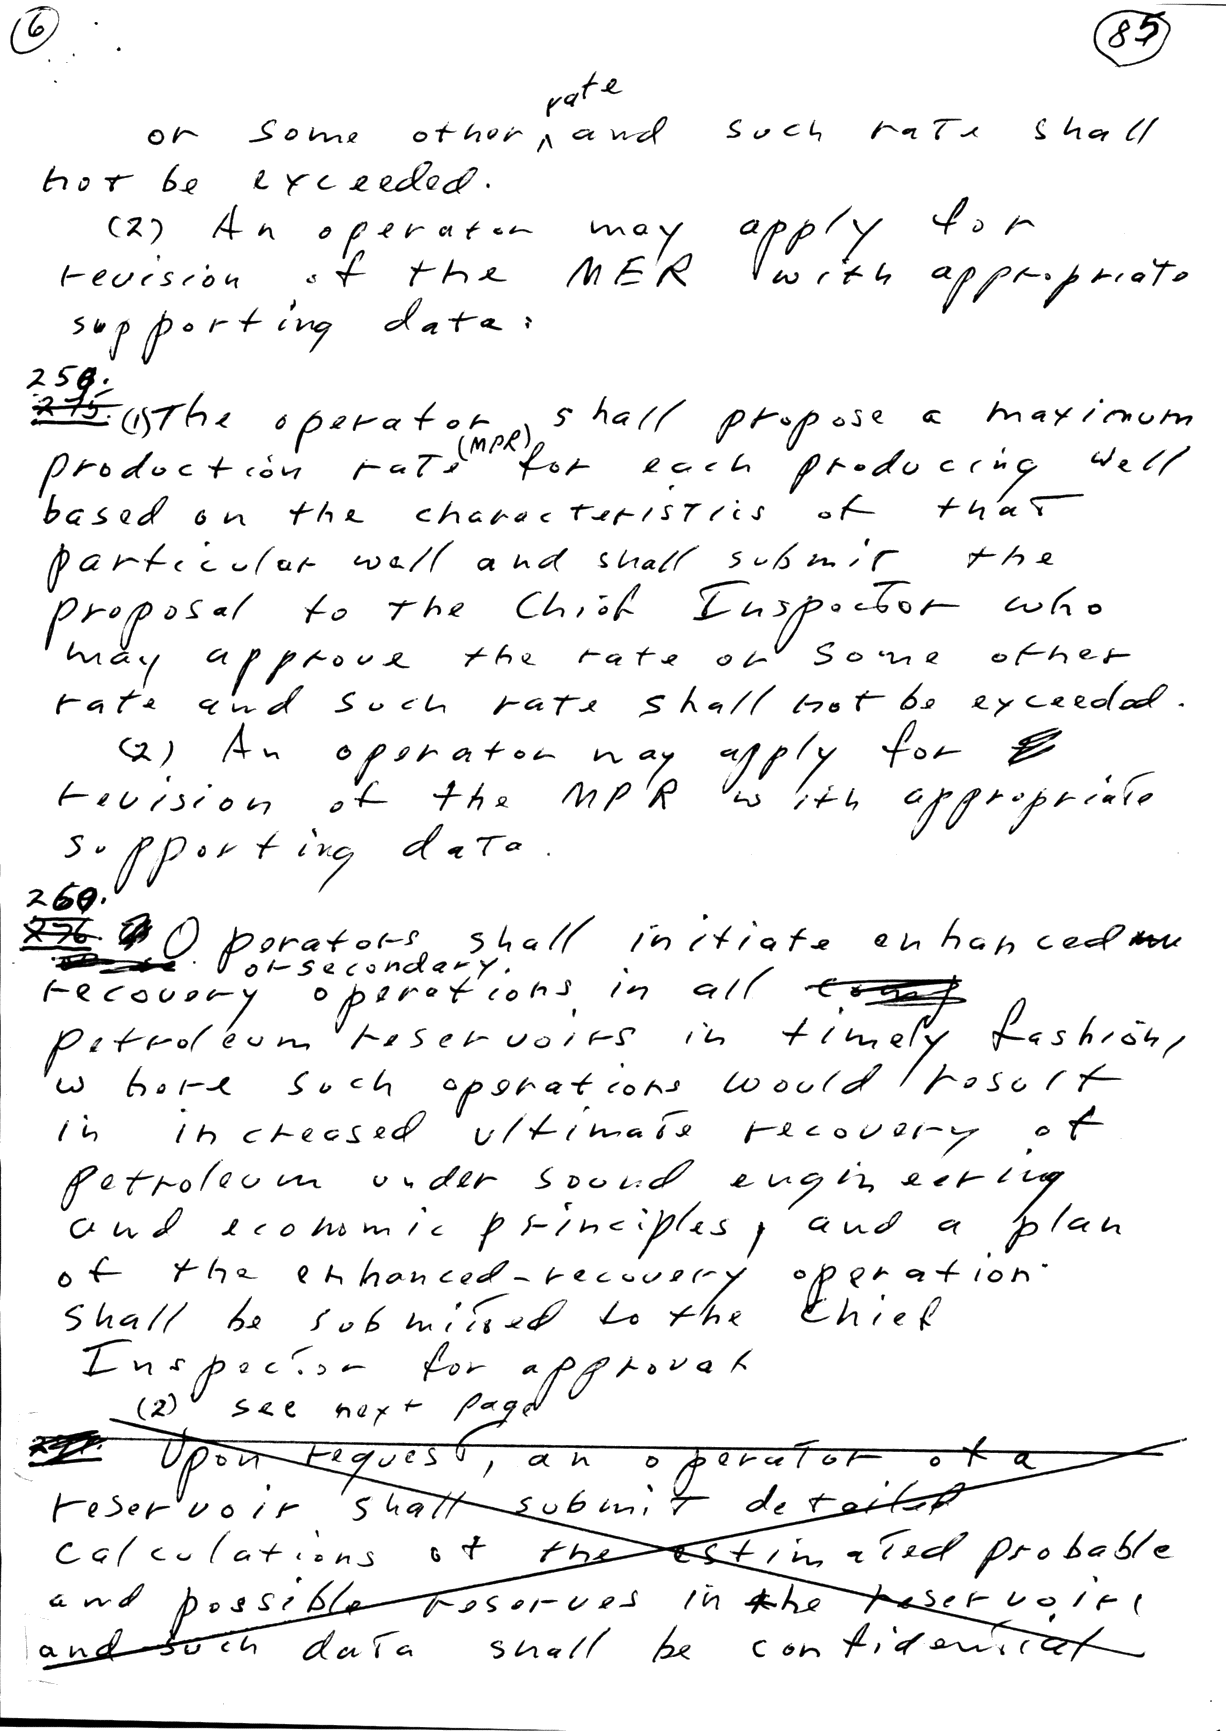 6
85
rate
or some other ^ and such rate shall
not be exceeded.
(2) An operator may apply for
revision of the MER with appropriate
supporting data.
275. (1) The operator shall propose a maximum
production rate (MPR) for each producing well
based on the characteristics of that
particular well and shall submit the
proposal to the Chief Inspector who
may approve the rate or some other
rate and such rate shall not be exceeded.
(2) An operator may apply for
revision of the MPR with appropriate
supporting data.
260.
276. Operators shall initiate enhanced
or secondary
recovery operations in all
petroleum reservoirs in timely fashion,
where such operations would result
in increased ultimate recovery of
petroleum under sound engineering
and economic principles, and a plan
of the enhanced-recovery operation
shall be submitted to the Chief
Inspector for approval
(2) see next page
Upon request, an operator of a
reservoir shall submit detailed
calculations of the estimated probable
and possible reserves in the reservoir,
and such data shall be confidential